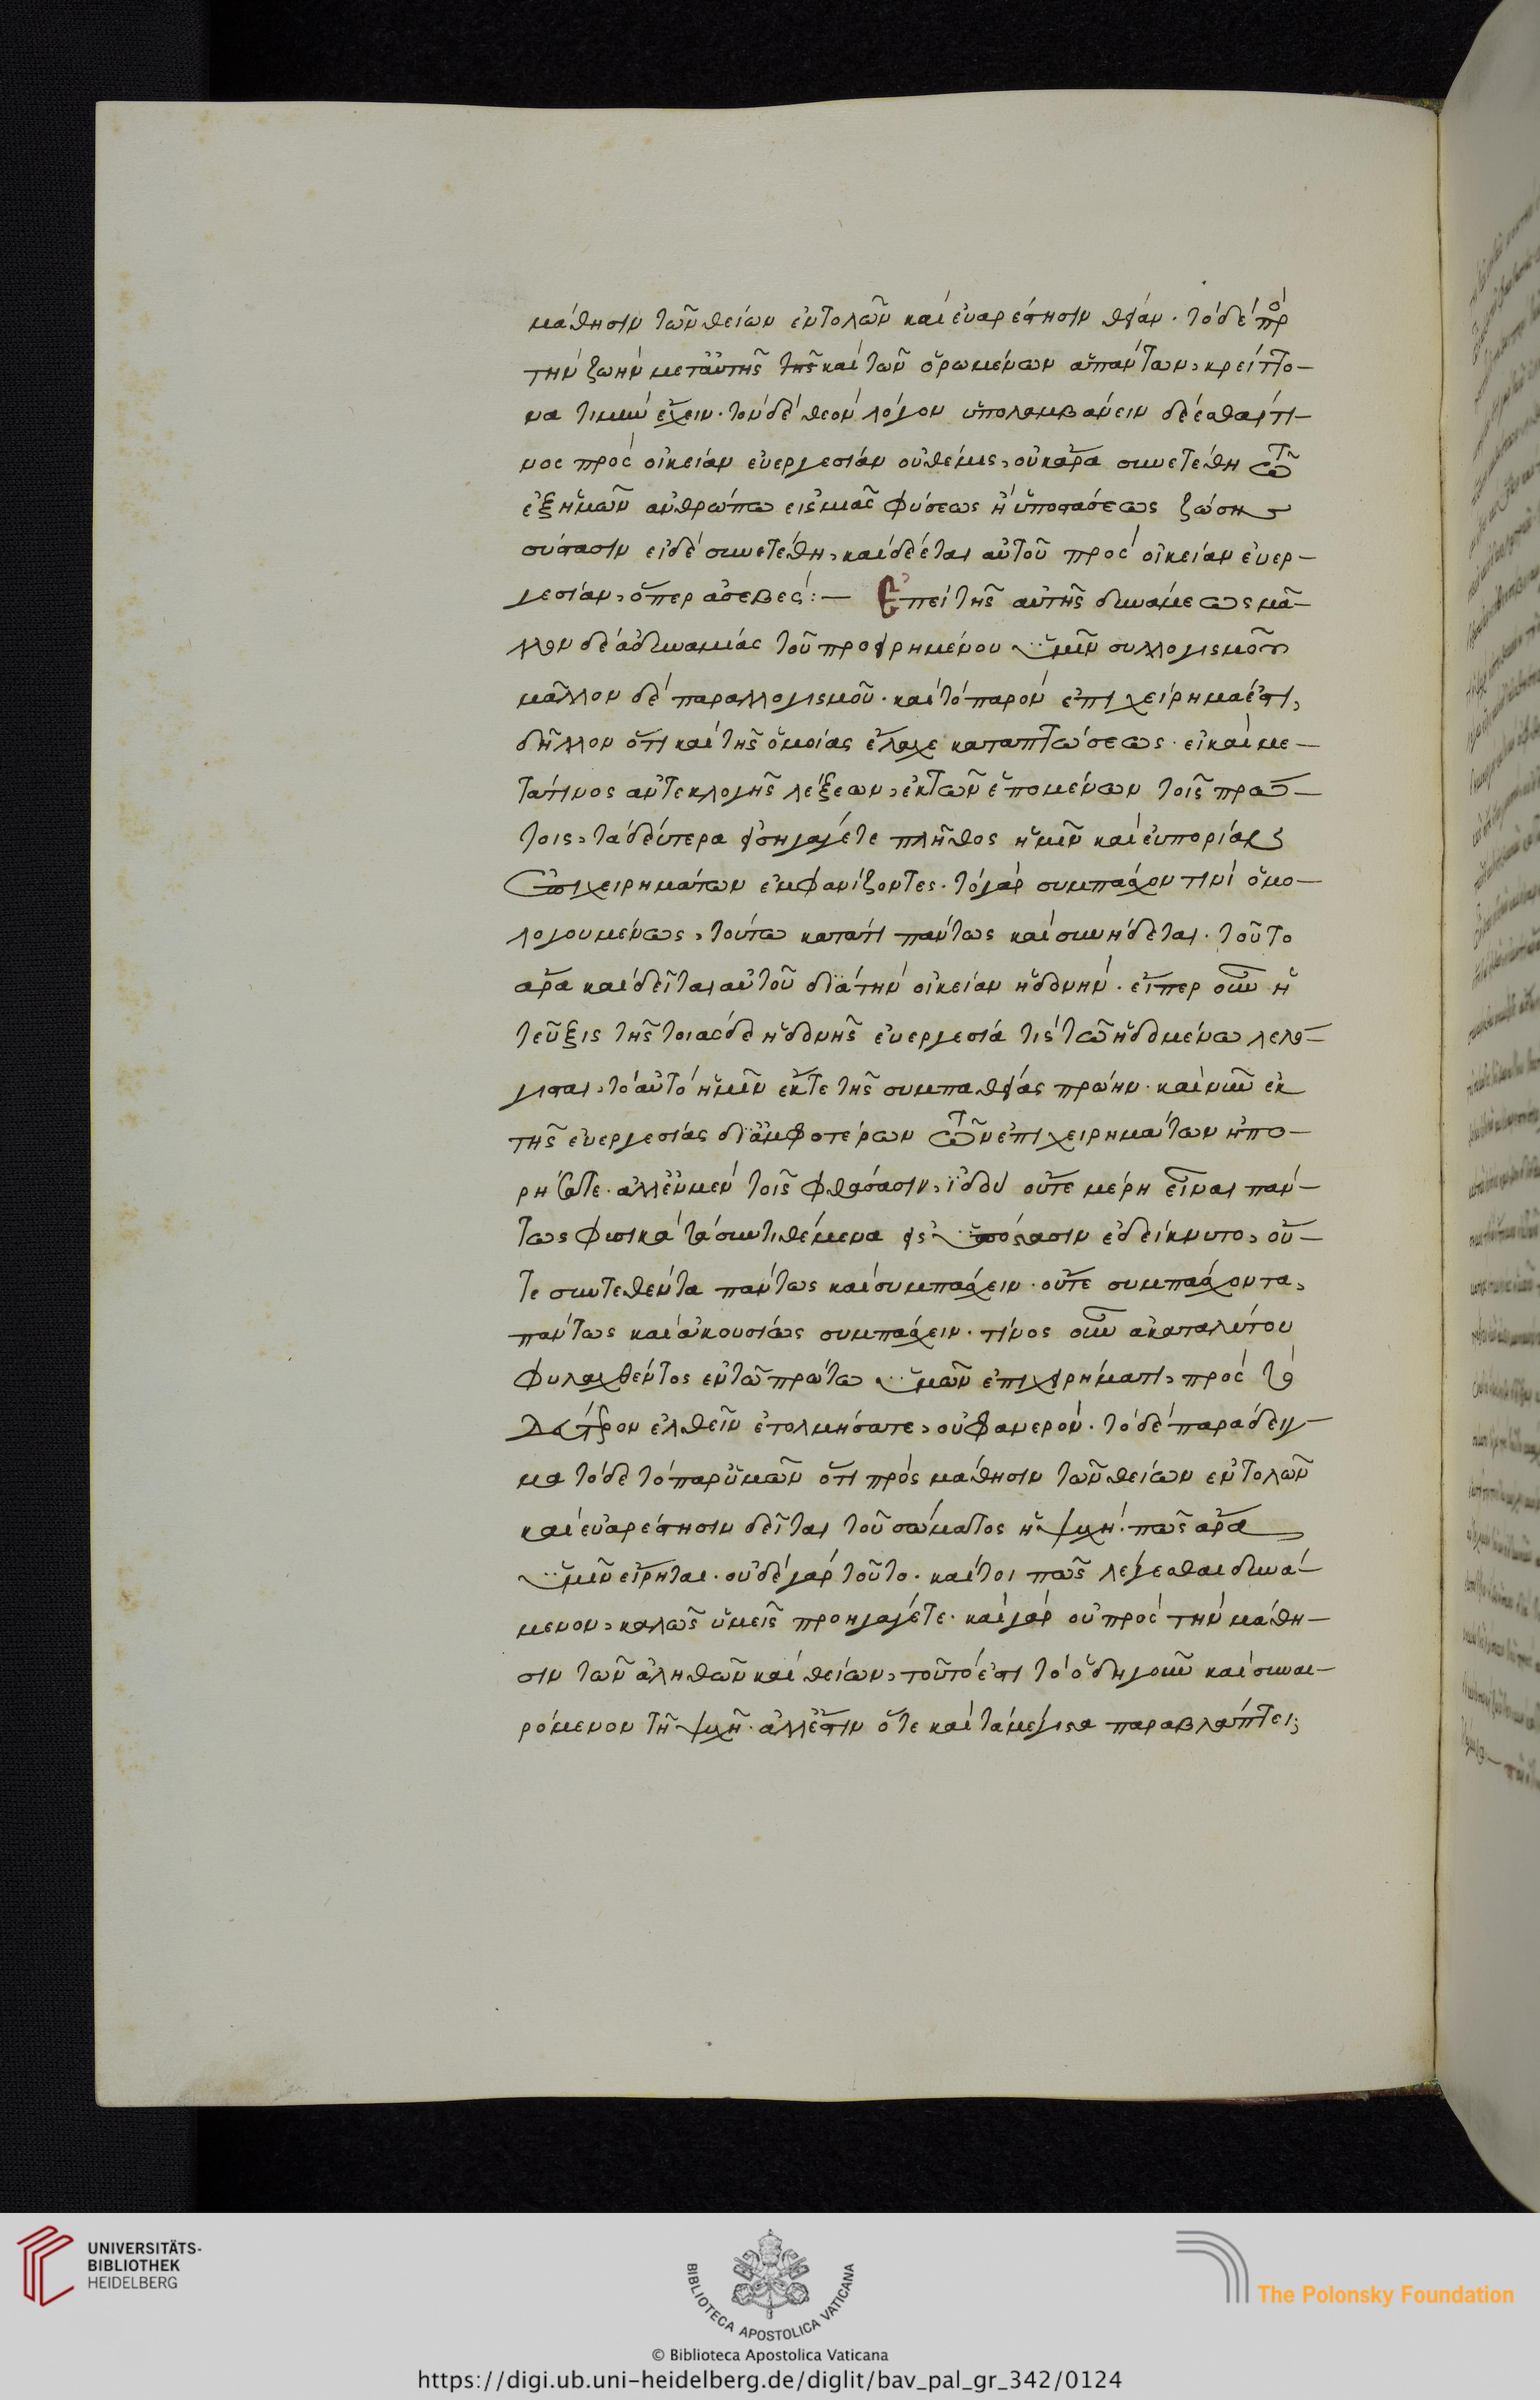 μάθησιν τῶν θείων ἐντολῶν καὶ εὐαρέστησιν θείαν. τὸ δὲ πρὸς
τὴν ζωὴν μετ' αὐτῆς τῆς καὶ τῶν ὁρωμένων ἁπάντων, κρείττο-
να τιμὴν ἔχειν. τὸν δὲ θεὸν λόγον ὑπολαμβάνειν δέεσθαί τι-
νος πρὸς οἰκείαν εὐεργεσίαν οὐ θέμις, οὐκ ἄρα συνετέθη τῶ
ἐξ ἡμῶν ἀνθρώπω εἰς μιᾶς φύσεως ἢ ὑποστάσεως ζώσης
σύστασιν εἰ δὲ συνετέθη, καὶ δέεται αὐτοῦ πρὸς οἰκείαν εὐερ-
γεσίαν, ὅπερ ἀσεβές:— Ἐπεὶ τῆς αὐτῆς δυνάμεως μᾶ-
λλον δὲ ἀδυναμίας τοῦ προειρημένου ὑμῖν συλλογισμοῦ
μᾶλλον δὲ παραλλογισμοῦ. καὶ τὸ παρὸν ἐπιχείρημα ἐστι,
δῆλλον ὅτι καὶ τῆς ὁμοίας ἔλαχε καταπτώσεως. εἰ καὶ με-
τά τινος αὖτ' ἐκλογῆς λέξεων, ἐκ τῶν ἑπομένων τοῖς πρώ-
τοις, τὰ δεύτερα εἰσηγάγετε πλῆθος ἡμῖν καὶ εὐπορίας
ἐπιχειρημάτων ἐμφανίζοντες. τὸ γὰρ συμπάσχον τινὶ ὁμο-
λογουμένως, τούτω κατά τι πάντως καὶ συνήδεται. τοῦτο
ἄρα καὶ δεῖται αὐτοῦ διὰ τὴν οἰκείαν ἡδονήν. εἴπερ οὖν ἡ
τεῦξις τῆς τοιᾶσδε ἡδονῆς εὐεργεσία τίς τῶ ἡδομένω λελό-
γισται, τὸ αὐτὸ ἡμῖν ἔκ τε τῆς συμπαθείας πρώην. καὶ νῦν ἐκ
τῆς εὐεργεσίας δι' ἀμφοτέρων τῶν ἐπιχειρημάτων ἠπο-
ρήσατε. ἀλλ' ἐν μὲν τοῖς φθάσασιν, ἰδοὺ οὔτε μέρη εἶναι πάν-
τως φυσικὰ τὰ συντιθέμενα εἰς ὑπόστασιν ἐδείκνυτο, οὔ-
τε συντεθέντα πάντως καὶ συμπάσχειν. οὔτε συμπάσχοντα,
πάντως καὶ ἀκουσίως συμπάσχειν. τίνος οὖν ἀκαταλύτου
φυλαχθέντος ἐν τῶ πρώτω ὑμῶν ἐπιχειρήματι, πρὸς τὸ
δεύτερον ἐλθεῖν ἐτολμήσατε, οὐ φανερόν. τὸ δὲ παράδειγ-
μα τόδε τὸ παρ' ὑμῶν ὅτι πρὸς μάθησιν τῶν θείων ἐντολῶν
καὶ εὐαρέστησιν δεῖται τοῦ σώματος ἡ ψυχή. πῶς ἄρα
ὑμῖν εἴρηται. οὐδὲ γὰρ τοῦτο. καίτοι πῶς λέγεσθαι δυνά-
μενον, καλῶς ὑμεῖς προηγάγετε. καὶ γὰρ οὐ πρὸς τὴν μάθη-
σιν τῶν ἀληθῶν καὶ θείων, τοῦτό ἐστι τὸ ὁδηγοῦν καὶ συναι-
ρόμενον τῆ ψυχῆ. ἀλλ' ἔστιν ὅτε καὶ τὰ μέγιστα παραβλάπτει;
UNIVERSITÄTS-
BIBLIOTHEK
HEIDELBERG
BIBLIOTECA APOSTOLICA VATICANA
The Polonsky Foundation
© Biblioteca Apostolica Vaticana
https://digi.ub.uni-heidelberg.de/diglit/bav_pal_gr_342/0124